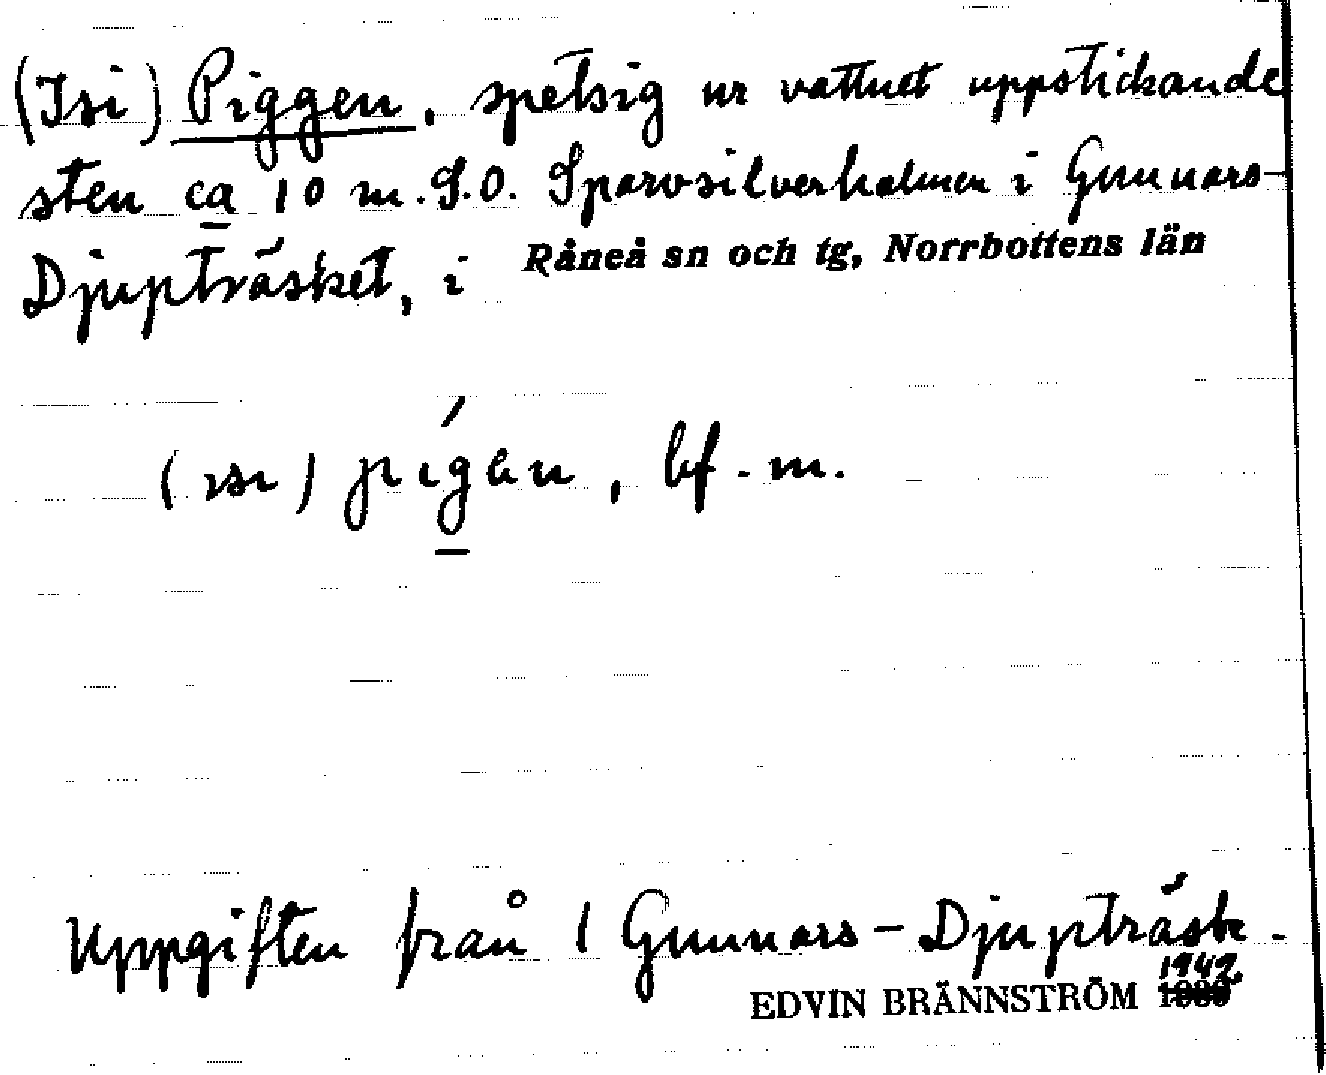 (Isi) Piggen, spetsig ur vattnet uppstickande
sten ca 10 m. S.O. Sparvsilverholmen i Gunnars-
Djupträsket, i Råneå sn och tg, Norrbottens län
(ısı) pígən, bf. m.
Uppgiften från 1 Gunnars-Djupträsk.
1942.
EDVIN BRÄNNSTRÖM